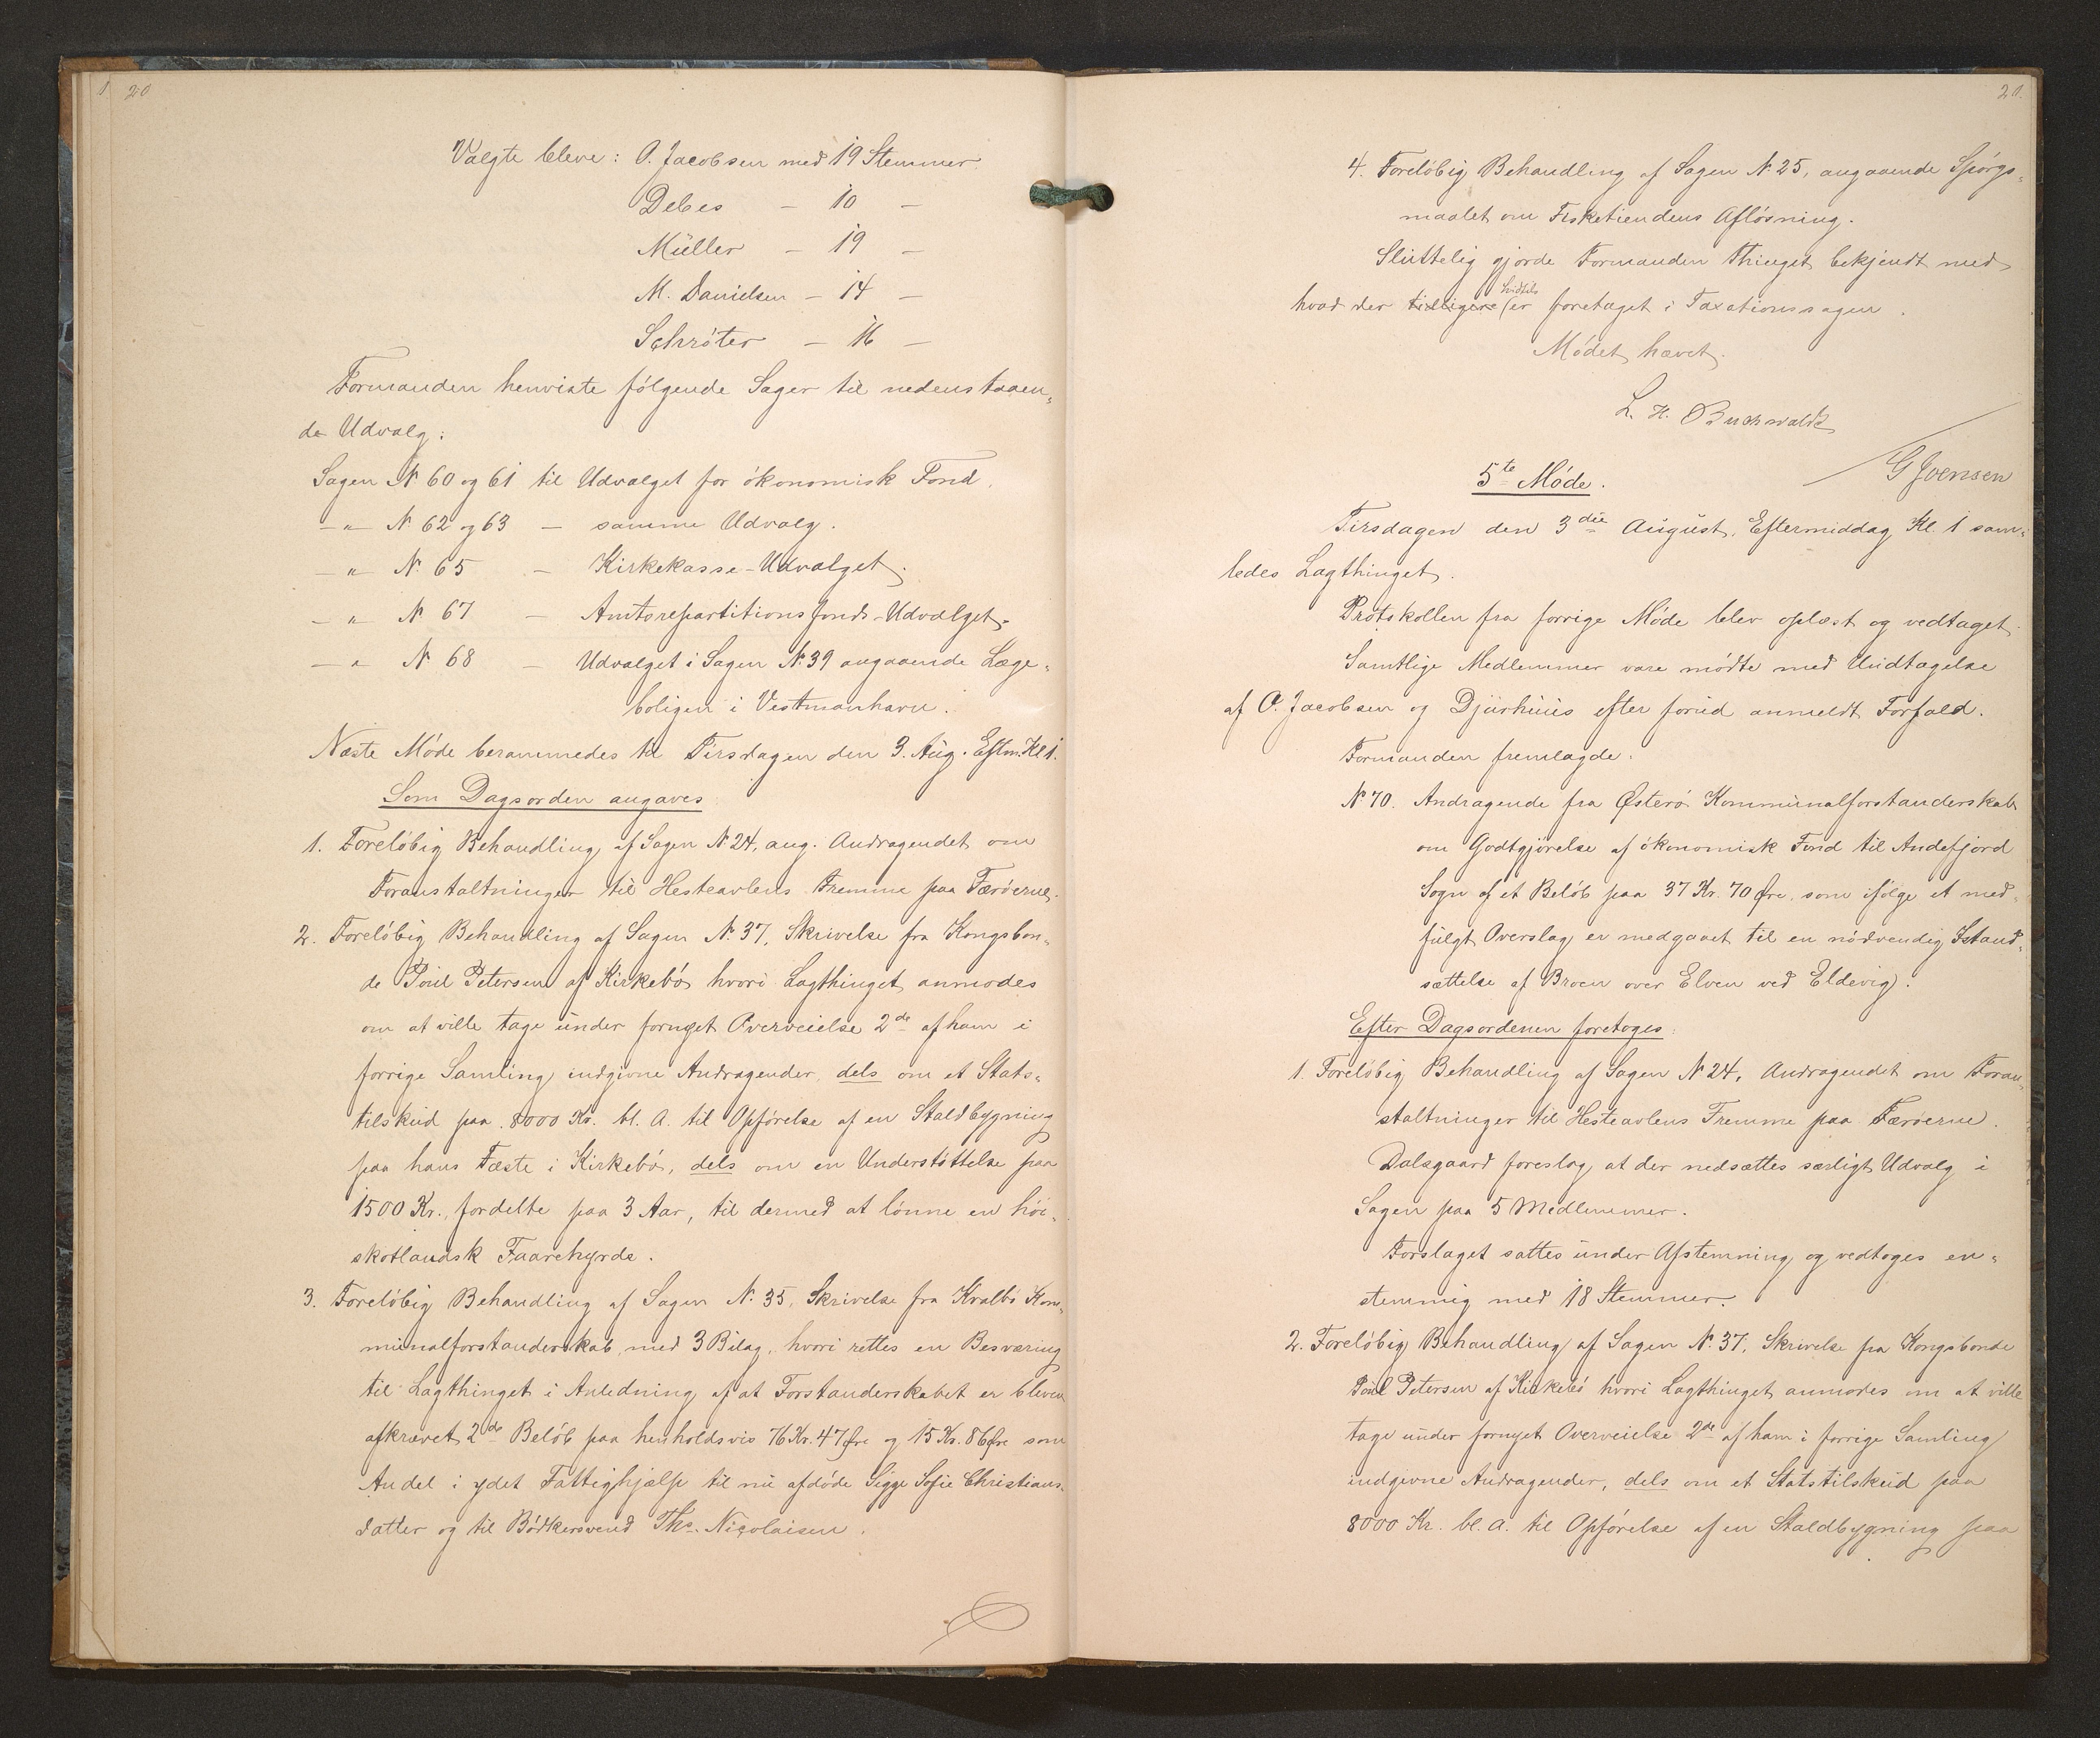 20
Valgte bleve: O. Jacobsen med 19 Stemmer.
Debes — 10 —
Müller — 19 —
M. Danielsen — 14 —
Schröter — 16 —
Formanden henviste følgende Sager til nedenstaaen-
de Udvalg:
Sagen N. 60 og 61 til Udvalget for økonomisk Fond.
—"— N. 62 og 63 — samme Udvalg.
—"— N. 65 — Kirkekasse-Udvalget.
—"— N. 67 — Amtsrepartitionsfonds-Udvalget.
—"— N. 68 — Udvalget i Sagen N. 39 angaaende Læge-
boligen i Vestmanhavn.
Næste Møde berammedes til Tirsdagen den 3. Aug. Eftm. Kl 1.
Som Dagsorden angaves
1. Foreløbig Behandling af Sagen N. 24, ang. Andragendet om
Foranstaltninger til Hesteavlens Fremme paa Færøerne.
2. Foreløbig Behandling af Sagen N. 37, Skrivelse fra Kongsbon-
de Poul Petersen af Kirkebø hvori Lagthinget anmodes
om at ville tage under fornyet Overveielse 2de af ham i
forrige Samling indgivne Andragender, dels om et Stats-
tilskud paa 8000 Kr. bl. A. til Opførelse af en Staldbygning
paa hans Fæste i Kirkebø, dels om en Understøttelse paa
1500 Kr., fordelte paa 3 Aar, til dermed at lønne en høi-
skotlandsk Faarehyrde.
3. Foreløbig Behandling af Sagen N. 35, Skrivelse fra Kvalbø Kom-
munalforstanderskab, med 3 Bilag, hvori rettes en Besværing
til Lagthinget i Anledning af at Forstanderskabet er bleven
afkrævet 2de Beløb paa henholdsvis 76 Kr. 47 Øre og 15 Kr. 86 Øre som
Andel i ydet Fattighjælp til nu afdøde Sigge Sofie Christians-
datter og til Bødkersvend Ths. Nicolaisen.
21.
4. Foreløbig Behandling af Sagen N. 25, angaaende Spørgs-
maalet om Fisketiendens Afløsning.
Sluttelig gjorde Formanden Thinget bekjendt med
hvad der tidligere (er hidtil foretaget i Taxationssagen.
Mødet hævet.
L. H. Buchwaldt
G Joensen
5te Møde.
Tirsdagen den 3die August, Eftermiddag Kl. 1 sam-
ledes Lagthinget.
Protokollen fra forrige Møde blev oplæst og vedtaget.
Samtlige Medlemmer vare mødte med Undtagelse
af O. Jacobsen og Djurhuus efter forud anmeldt Forfald.
Formanden fremlagde:
N. 70. Andragende fra Østerø Kommunalforstanderskab
om Godtgjørelse af økonomisk Fond til Andefjord
Sogn af et Beløb paa 37 Kr. 70 Øre, som ifølge et med-
fulgt Overslag er medgaaet til en nødvendig Istand-
sættelse af Broen over Elven ved Eldevig.
Efter Dagsordenen foretoges:
1. Foreløbig Behandling af Sagen N. 24, Andragendet om Foran-
staltninger til Hesteavlens Fremme paa Færøerne.
Dalsgaard foreslog, at der nedsættes særligt Udvalg i
Sagen paa 5 Medlemmer.
Forslaget sattes under Afstemning og vedtoges en-
stemmig med 18 Stemmer.
2. Foreløbig Behandling af Sagen N. 37, Skrivelse fra Kongsbonde
Poul Petersen af Kirkebø hvori Lagthinget anmodes om at ville
tage under fornyet Overveielse 2de af ham i forrige Samling
indgivne Andragender, dels om et Statstilskud paa
8000 Kr. bl. a. til Opførelse af en Staldbygning paa